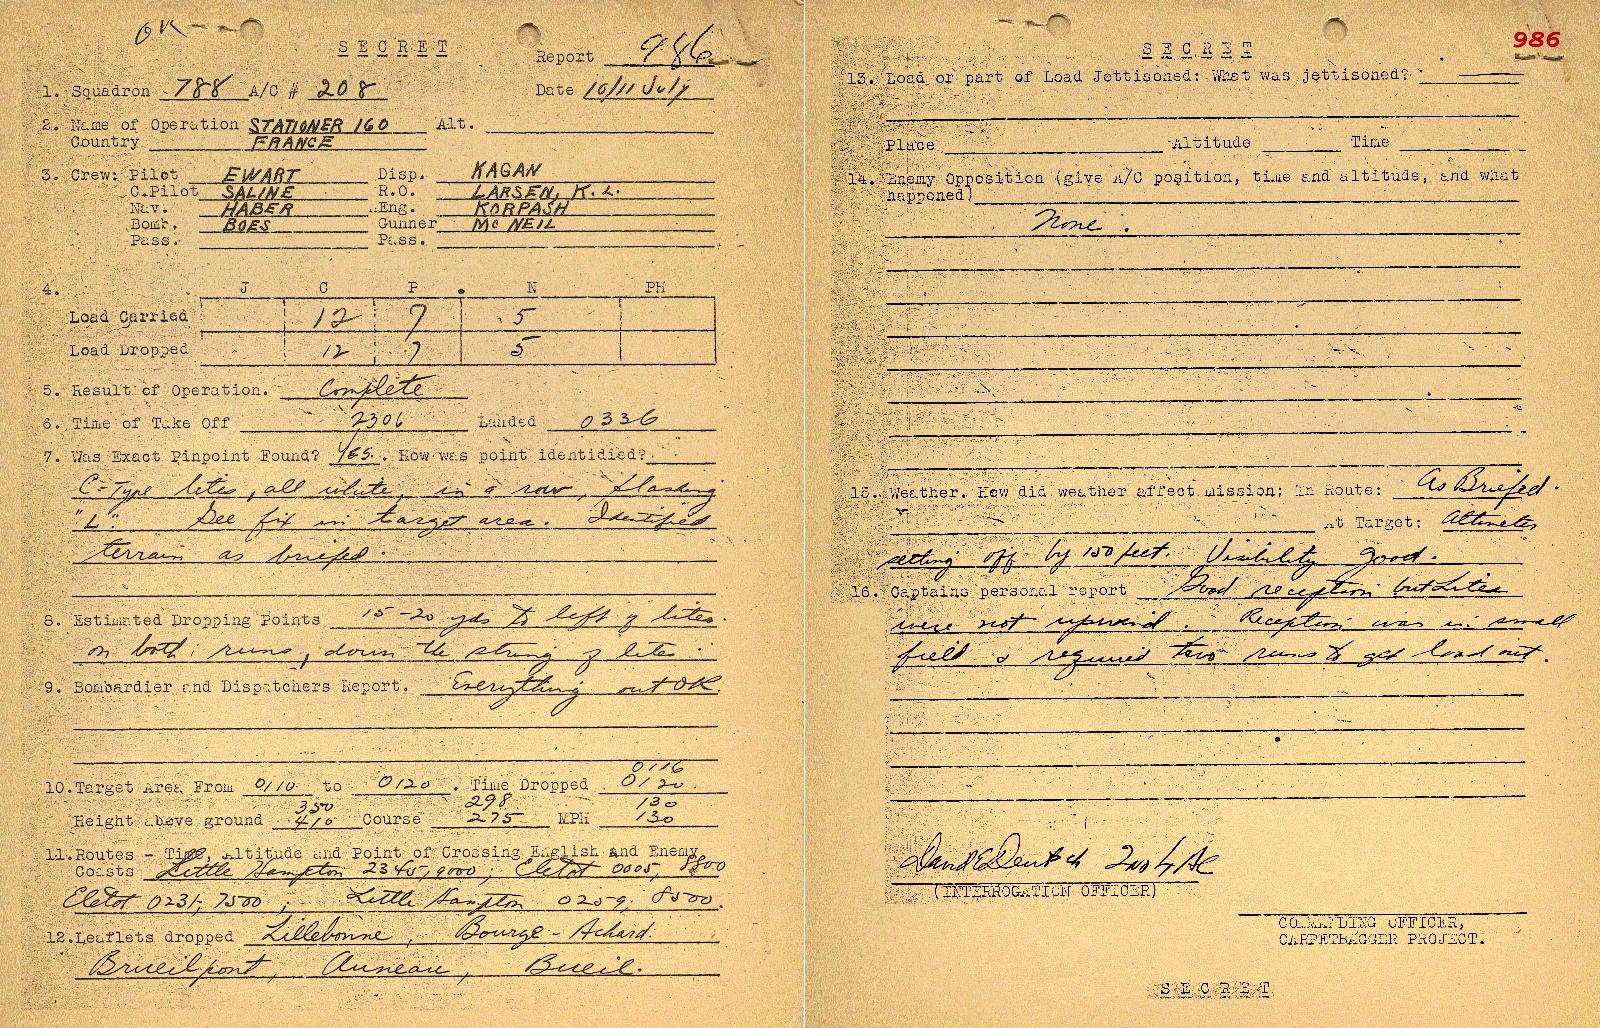 OK
SECRET
Report 986
1. Squadron 788 A/C # 208 Date 10/11 July
2. Name of Operation STATIONER 160 Alt.
Country FRANCE
3. Crew: Pilot EWART Disp. KAGAN
C.Pilot SALINE R.O. LARSEN, K. L.
Nav. HABER Eng. KORPASH
Bomb. BOES Gunner Mc NEIL
Pass. Pass.
4. J C P N PH
Load Carried 12 7 5
Load Dropped 12 7 5
5. Result of Operation. Complete
6. Time of Take Off 2306 Landed 0336
7. Was Exact Pinpoint Found? Yes. How was point identidied?
C-Type lites, all white, in a row, flashing
"L". See fix in target area. Identified
terrain as briefed.
8. Estimated Dropping Points 15-20 yds to left of lites
on both runs, down the string of lites.
9. Bombardier and Dispatchers Report. Everything out OK.
0116
10. Target Area From 0110 to 0120. Time Dropped 0120
350 298 130
Height above ground 410 Course 275 MPH 130
11. Routes - Time, Altitude and Point of Crossing English and Enemy
Coasts Little Hampton 2345, 9000; Eletot 0005, 8800
Eletot 0231, 7500; Little Hampton 0259, 8500.
12. Leaflets dropped Lillebonne, Bourge-Achard.
Brueilpont, Auneau, Bueil.
SECRET
986
13. Load or part of Load Jettisoned: What was jettisoned?
Place Altitude Time
14. Enemy Opposition (give A/C position, time and altitude, and what
happened)
None.
15. Weather. How did weather affect mission; In Route: As Briefed.
At Target: Altimeter
setting off by 150 feet. Visibility good.
16. Captains personal report Good reception but Lites
were not . Reception was in small
field & required two runs to get load out.
David E Deutsch 2nd Lt AC
(INTERROGATION OFFICER)
COMMANDING OFFICER,
CARPETBAGGER PROJECT.
SECRET